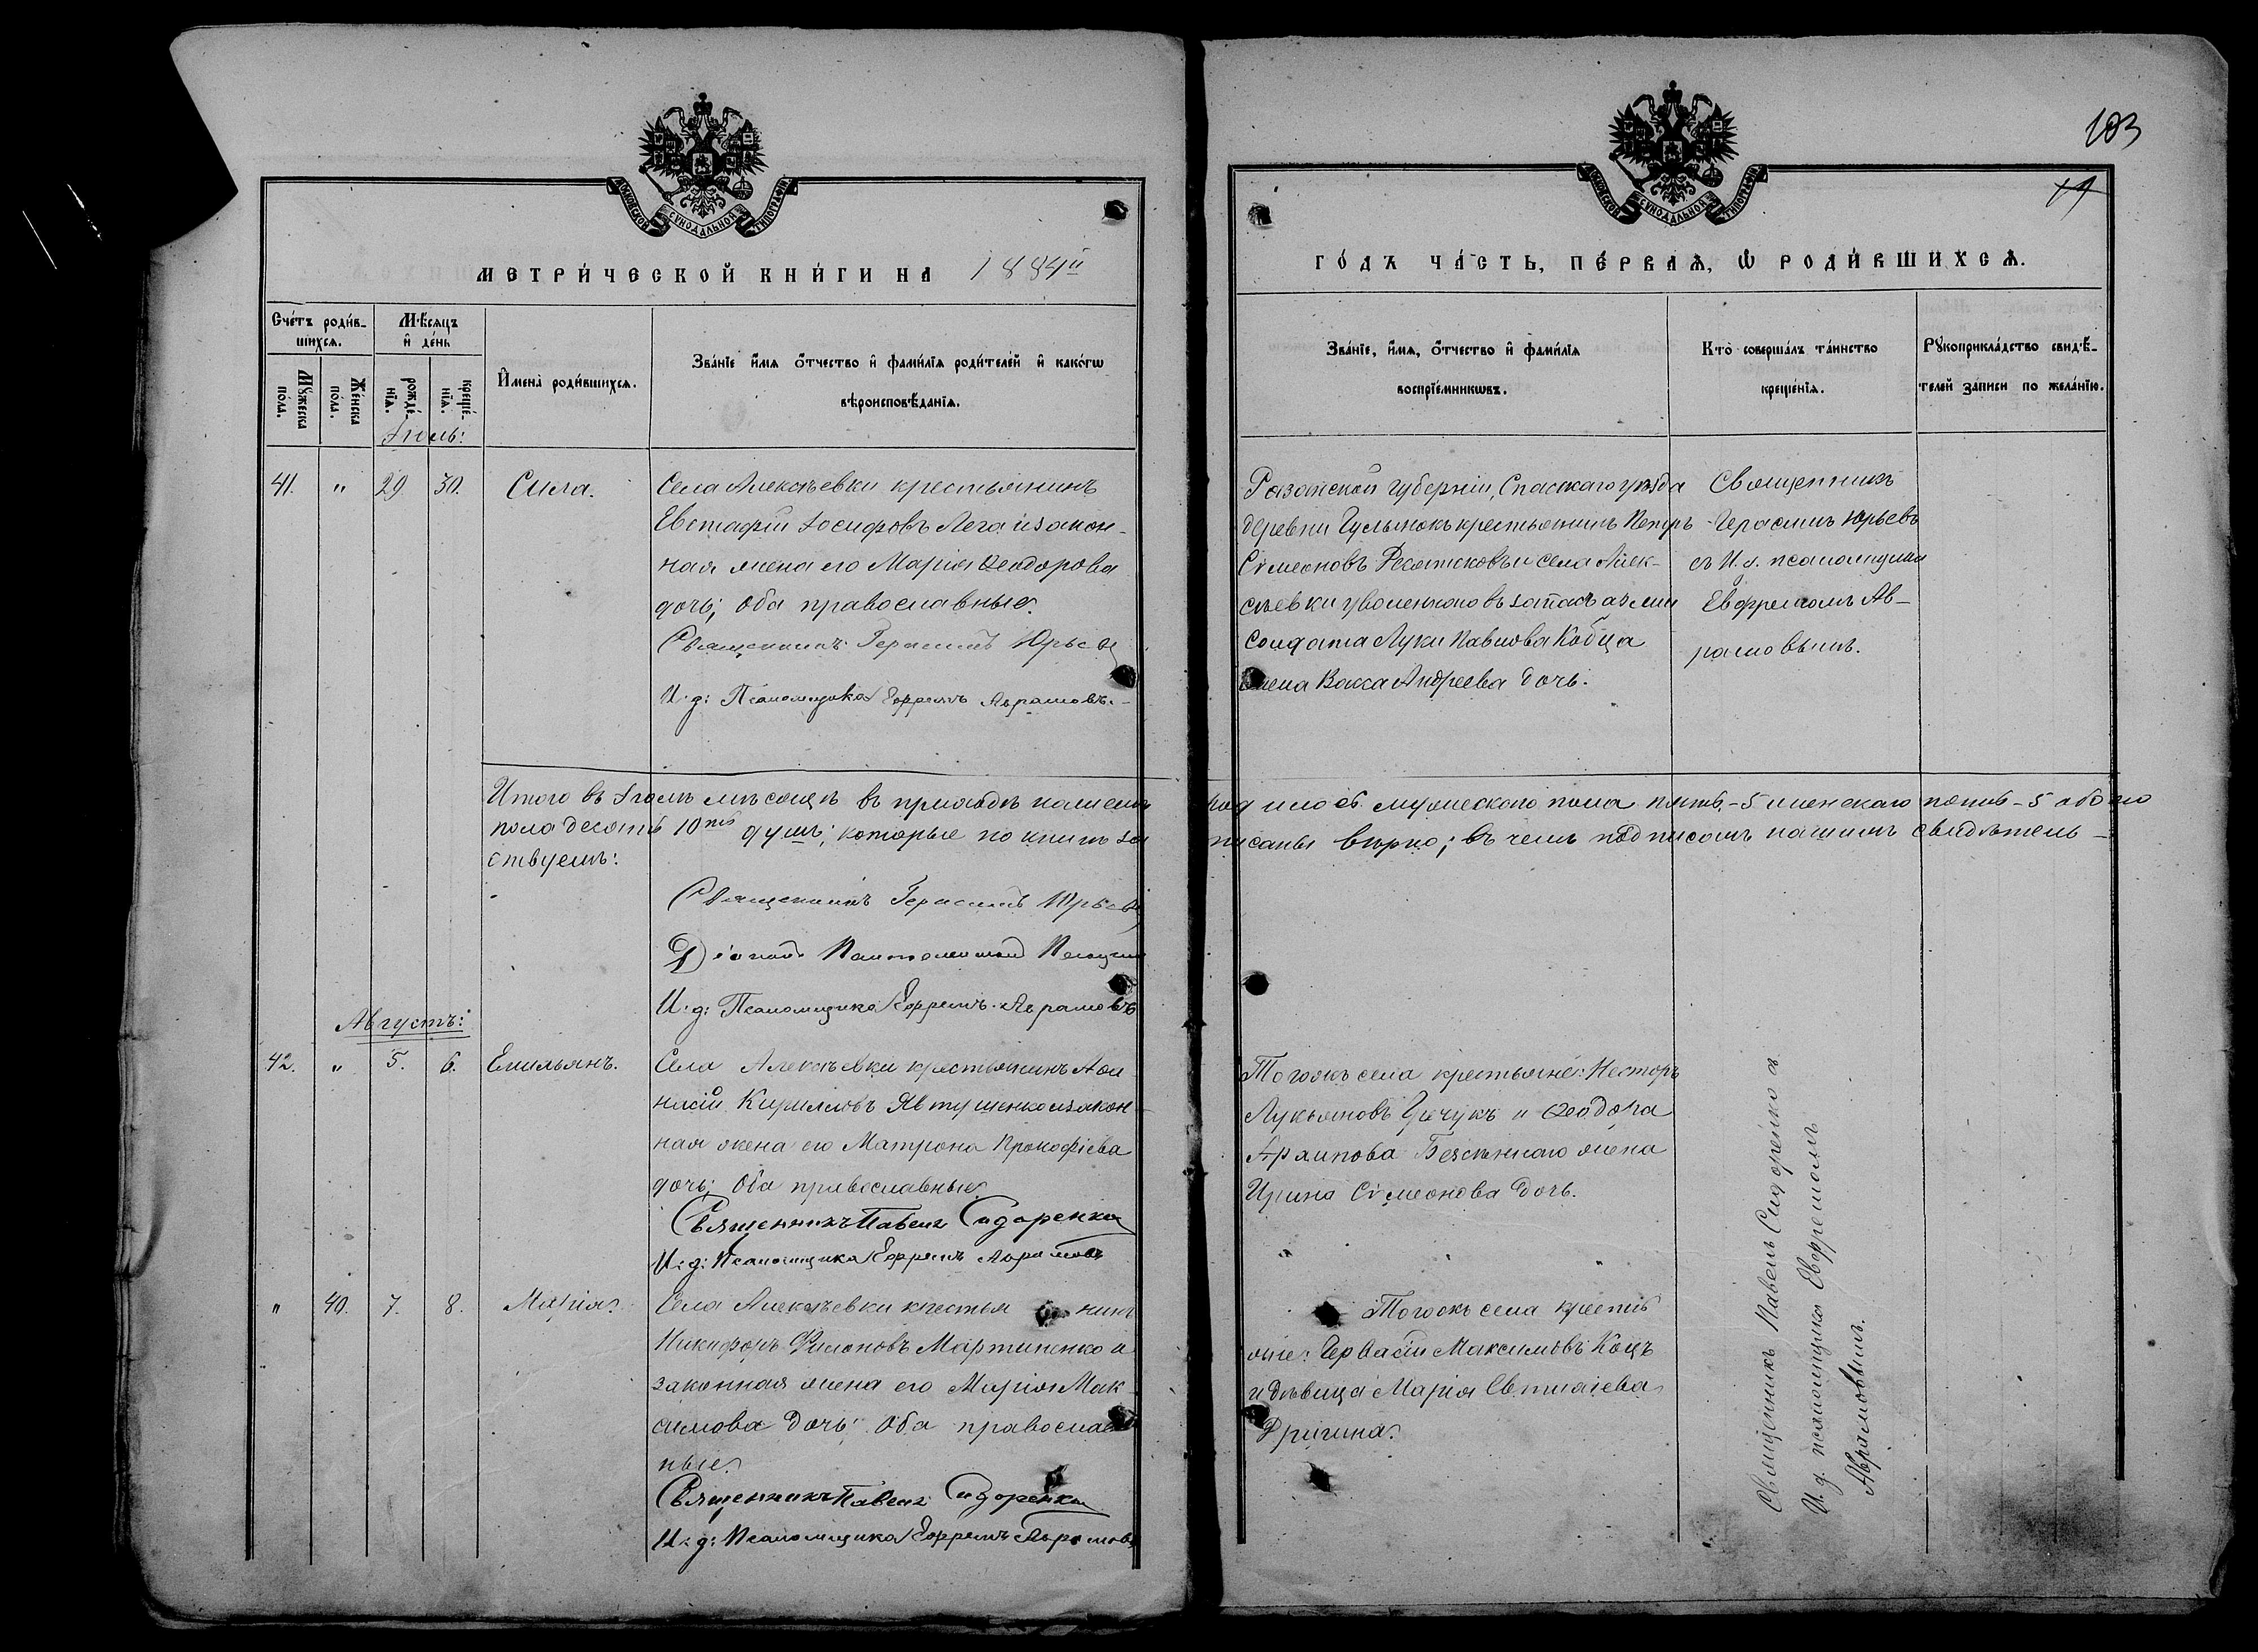 МОСКОВСКОЙ СУНОДАЛЬНОЙ ТИПОГРАФІИ
МЕТРИ́ЧЕСКОЙ КНИ́ГИ НА 1884й
Сче́тъ роди́в-
шихся.
Мѣ́сяцъ
и҆ де́нь
Мꙋ́жеска
по́ла.
Же́нска
по́ла.
рожде́-
нїя.
креще́-
нїя.
И҆мена̀ роди́вшихся.
Зва́нїе и҆́мя ѻ҆́тчество и҆ фами́лїя роди́телей и҆ како́гѡ
вѣроисповѣ́данїя.
Іюль:
41. " 29 30. Сила.
Села Алексѣевки крестьянинъ
Евстафій Іосифовъ Лега и закон-
ная жена его Марія Ѳеодорова
дочь; оба православные.
Священникъ Герасимъ Юрьевъ
И: д: Псаломщика Ефремъ Аврамовъ.
Итого въ Іюлѣ мѣсяцѣ въ приходѣ нашемъ
пола десять 10ть душъ; которые по книгѣ за
ствуемъ:
Священникъ Герасимъ Юрьевъ
Діаконъ
И: д: Псаломщика Ефремъ Аврамовъ
Августъ:
42. " 5. 6. Емильянъ.
Села Алексѣевки крестьянинъ Аѳа-
насій Кириловъ Явтушенко и закон-
ная жена его Матрона Прокофіева
дочь; оба православные.
Священникъ Павелъ Сидоренко
И: д: Псаломщика Ефремъ Аврамовъ
" 40. 7. 8. Марія.
Села Алексѣевки крестья нинъ
Никифоръ Филоновъ Мартиненко и
законная жена его Марія Мак-
симова дочь; оба православ
ные.
Священникъ Павелъ Сидоренко
И: д: Псаломщика Ефремъ Аврамовъ
103
МОСКОВСКОЙ СУНОДАЛЬНОЙ ТИПОГРАФІИ
ГО́ДЪ ЧА́СТЬ, ПЕ́РВАЯ, Ѡ҆ РОДИ́ВШИХСЯ.
Зва́нїе, и҆́мя, ѻ҆́тчество и҆ фами́лїя
воспрїе́мникѡвъ.
Кто̀ соверша́лъ та́инство
креще́нїя.
Рꙋкоприкла́дство свидѣ́-
телей за́писи по жела́нїю.
Рязанской губерніи, Спасскаго уѣзда
деревни крестьянинъ Петръ
Сѵмеоновъ и села Алек-
сѣевки уволеннаго въ запасъ арміи
солдата Луки Павлова Кобца
жена Васса Андреева дочь.
Священникъ
Герасимъ Юрьевъ
съ И. д. псаломщика
Евфремомъ Ав-
рамовымъ.
родилось мужескаго пола пять - 5 и женскаго пять - 5 обоего
писаны вѣрно; въ чемъ подписомъ нашимъ свидѣтель-
Тогожъ села крестьяне: Несторъ
Лукьяновъ и Ѳеодора
Архипова жена
Ирина Сѵмеонова дочь.
Тогожъ села кресть
яне: Гервасій Максимовъ Коцъ
и дѣвица Марія
Дригина.
Священникъ Павелъ Сидоренко съ
И. д. псаломщика Евфремомъ
Аврамовымъ.